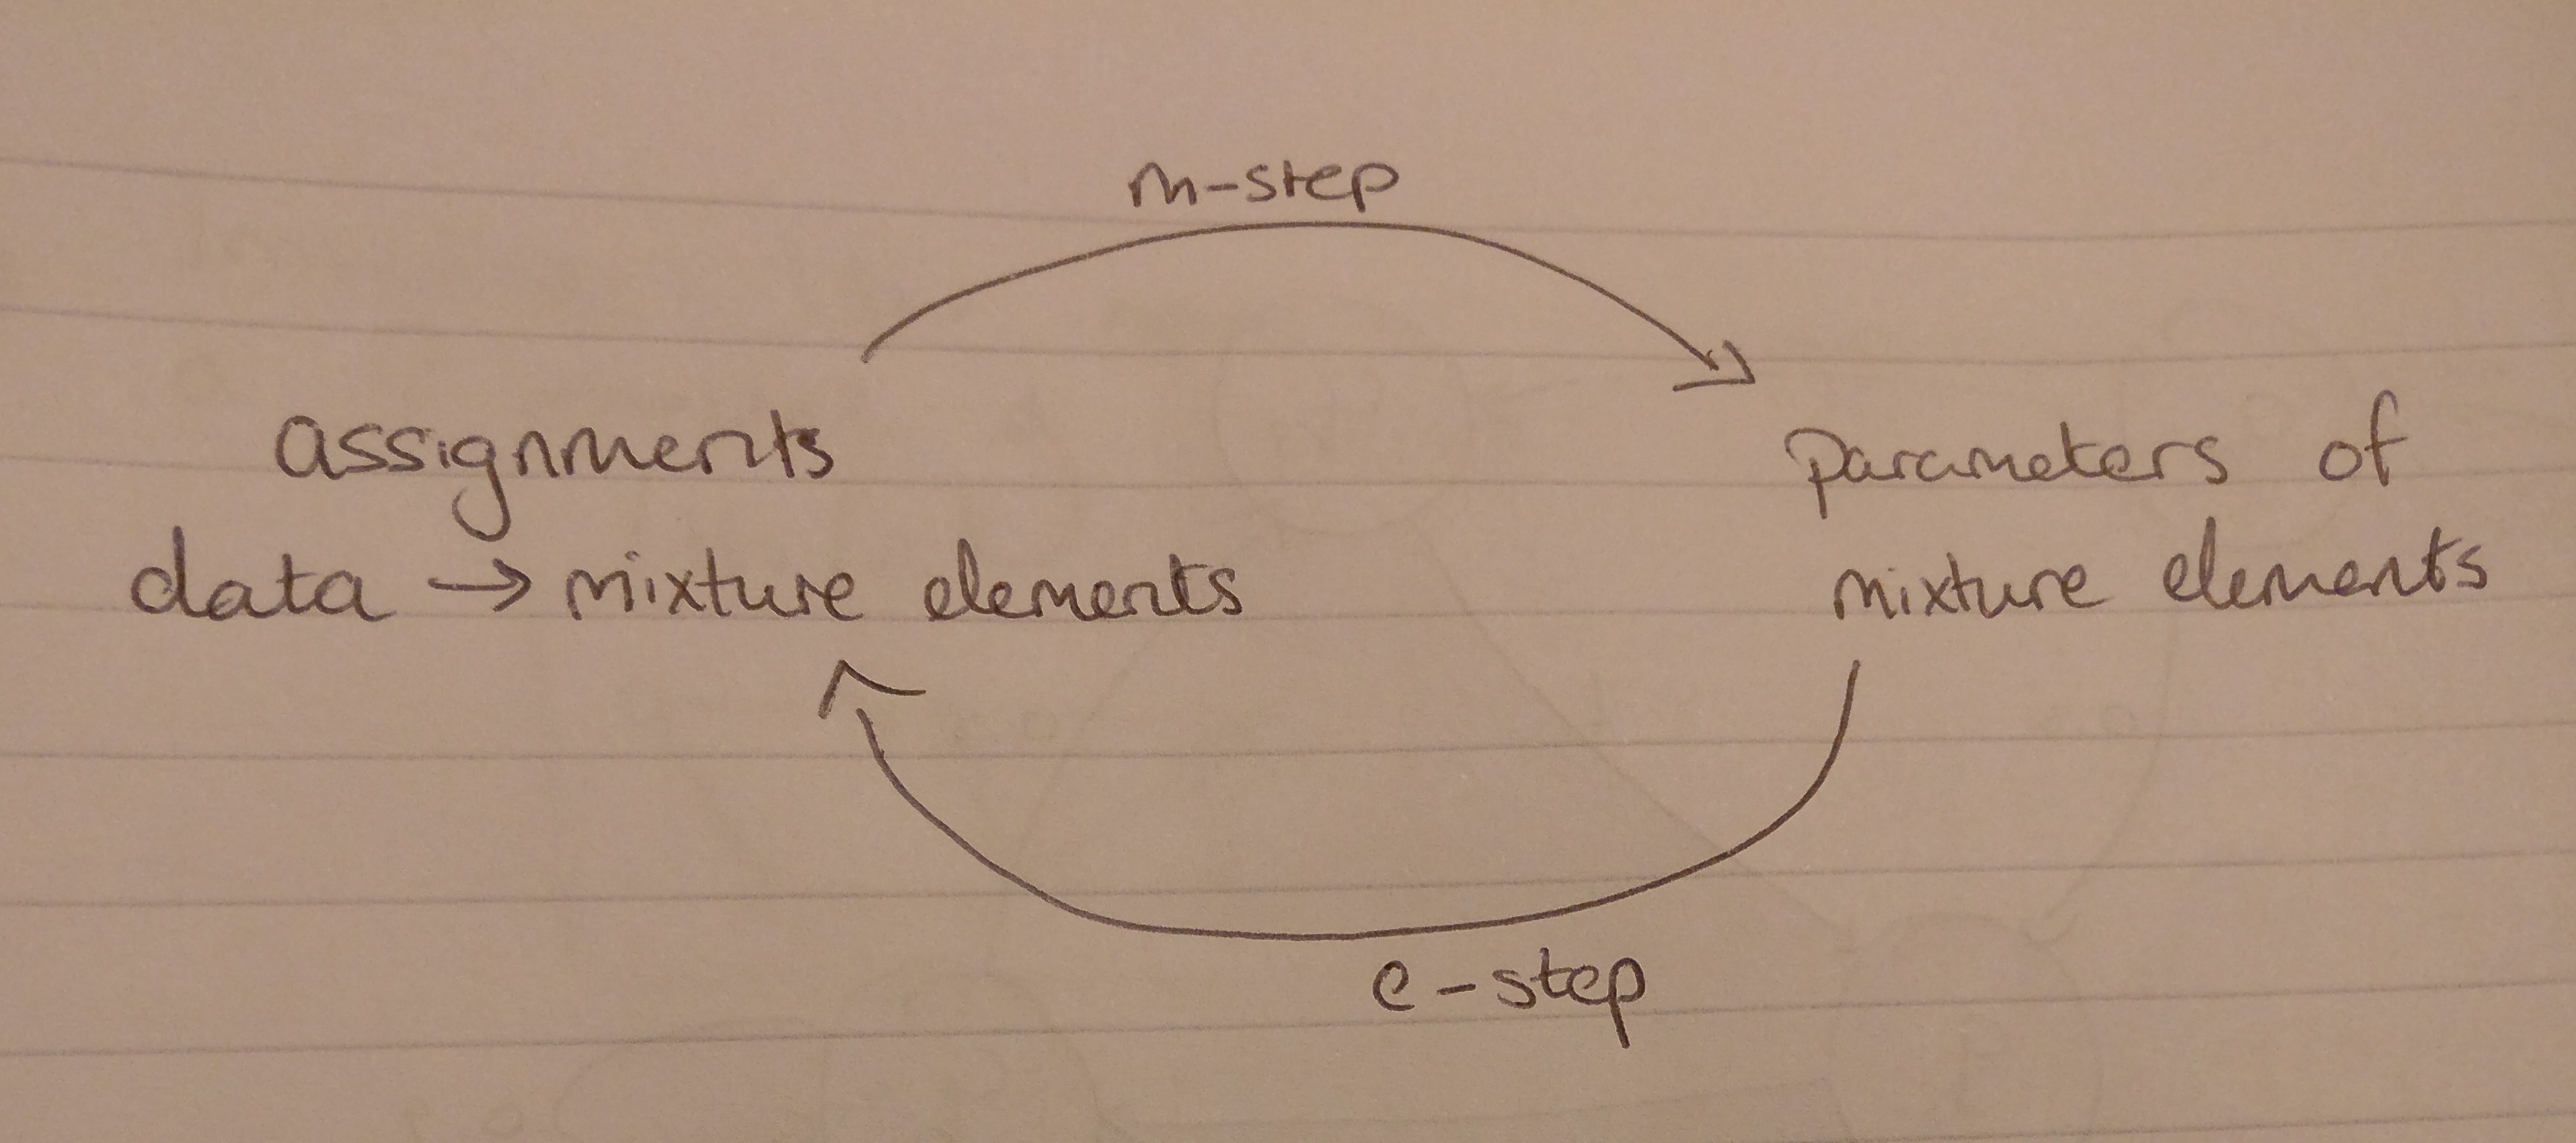 m-step
assignments
data → mixture elements
parameters of
mixture elements
e-step